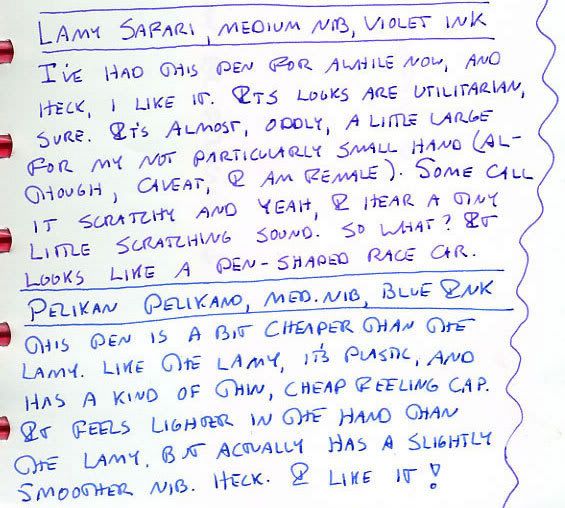 LAMY SAFARI, MEDIUM NIB, VIOLET INK
I'VE HAD THIS PEN FOR AWHILE NOW, AND
HECK, I LIKE IT. ITS LOOKS ARE UTILITARIAN,
SURE. IT'S ALMOST, ODDLY, A LITTLE LARGE
FOR MY NOT PARTICULARLY SMALL HAND (AL-
THOUGH, CAVEAT, I AM FEMALE). SOME CALL
IT SCRATCHY AND YEAH, I HEAR A TINY
LITTLE SCRATCHING SOUND. SO WHAT? IT
LOOKS LIKE A PEN-SHAPED RACE CAR.
PELIKAN PELIKANO, MED. NIB, BLUE INK
THIS PEN IS A BIT CHEAPER THAN THE
LAMY. LIKE THE LAMY, IT'S PLASTIC, AND
HAS A KIND OF THIN, CHEAP FEELING CAP.
IT FEELS LIGHTER IN THE HAND THAN
THE LAMY, BUT ACTUALLY HAS A SLIGHTLY
SMOOTHER NIB. HECK. I LIKE IT!